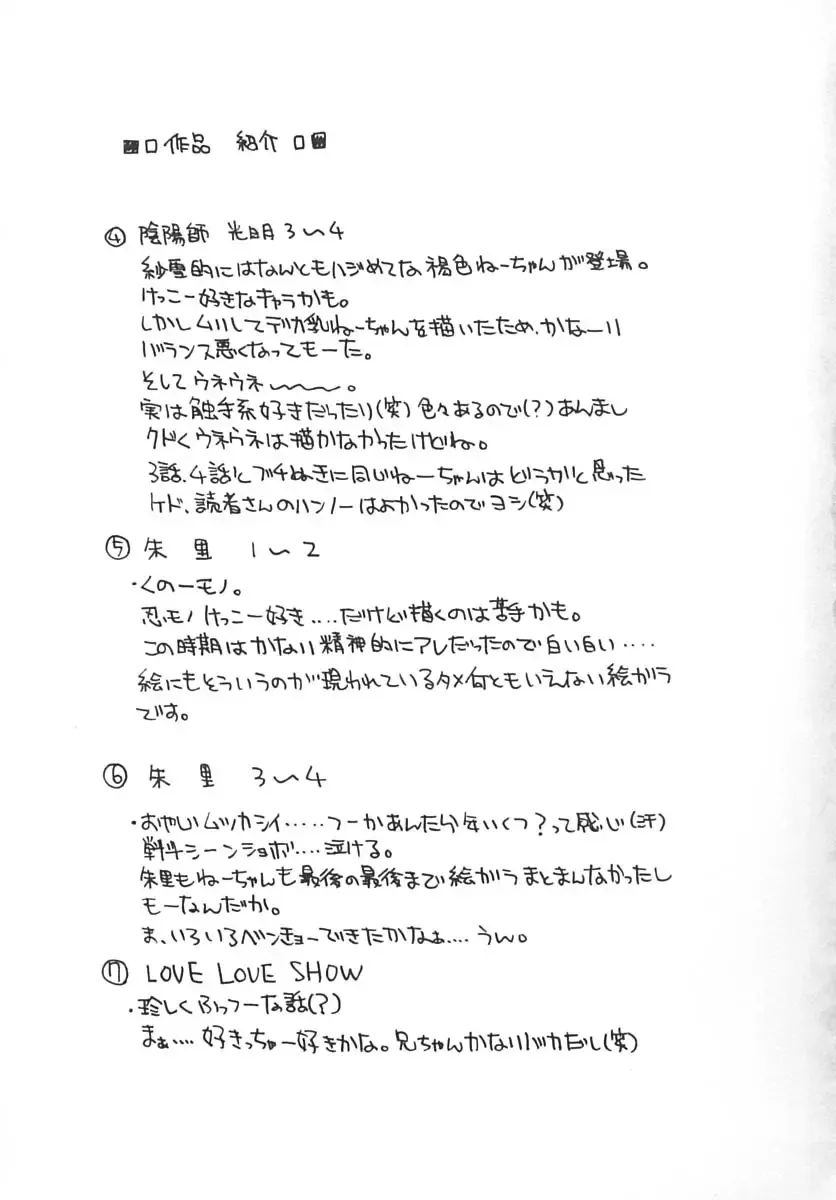 ■□作品 紹介□■
④ 陰陽師 光明 3〜4
紗雪的にはなんともハジめてな褐色ねーちゃんが登場。
けっこー好きなキャラかも。
しかしムリしてデカ乳ねーちゃんを描いたため、かなーり
バランス悪くなってもーた。
そしてウネウネ〜〜〜。
実は触手系好きだったり(笑)色々あるので(?)あんまし
クドくウネウネは描かなかったけどね。
3話、4話とブチぬきに同じねーちゃんはどうかと思った
ケド、読者さんのハンノーはよかったのでヨシ(笑)
⑤ 朱里 1〜2
・くの一モノ。
忍モノけっこー好き....だけど描くのは苦手かも。
この時期はかなり精神的にアレだったので白い白い....
絵にもそういうのが現われているタメ何ともいえない絵ガラ
です。
⑥ 朱里 3〜4
・おやじムツカシイ.....つーかあんた少年いくつ?って感じ(汗)
戦斗シーンショボ....泣ける。
朱里もねーちゃんも最後の最後まで絵ガラまとまんなかったし
もーなんだか。
ま、いろいろベンキョーできたかなぁ....うん。
⑦ LOVE LOVE SHOW
・珍しくふっつーな話(?)
まぁ....好きっちゃー好きかな。兄ちゃんかなりバカだし(笑)